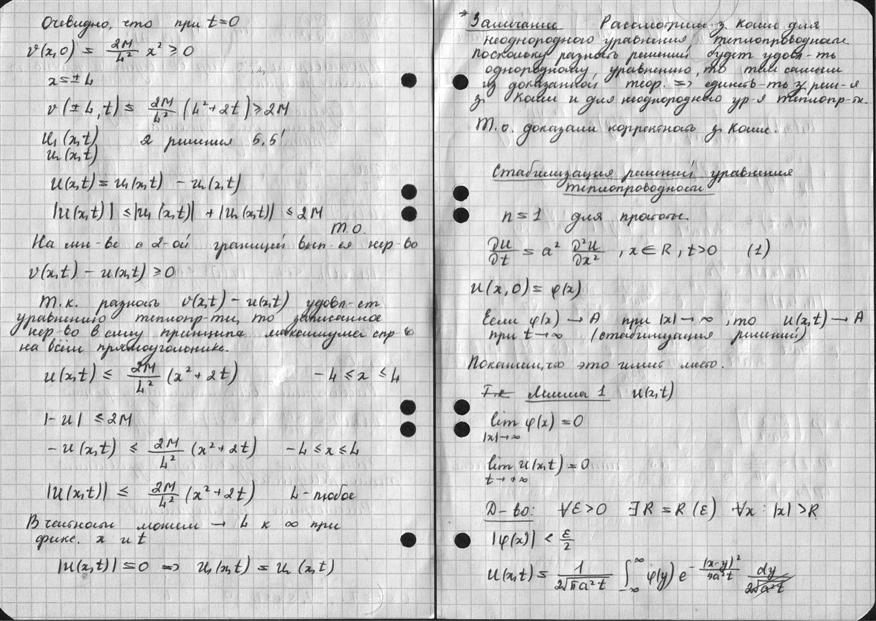 Очевидно, что при t=0
v(x,0) = 2M/L² x² ≥ 0
x = ± L
v(± L, t) ≤ 2M/L² (L²+2t) ≥ 2M
u₁(x,t) 2 решения 5,5'
u₂(x,t)
u(x,t) = u₁(x,t) - u₂(x,t)
|u(x,t)| ≤ |u₁(x,t)| + |u₂(x,t)| ≤ 2M
Т.О.
На мн-ве с 2-ой границей вып-ся нер-во
v(x,t) - u(x,t) ≥ 0
Т.к. разность v(x,t) - u(x,t) удовл-ет
уравнению теплопр-ти, то записанное
нер-во в силу принципа максимума спр-во
на всём прямоугольнике.
u(x,t) ≤ 2M/L² (x²+2t) -L ≤ x ≤ L
|-u| ≤ 2M
-u(x,t) ≤ 2M/L² (x²+2t) -L ≤ x ≤ L
|u(x,t)| ≤ 2M/L² (x²+2t) L - любое
В частности можем → L к ∞ при
фикс. x и t
|u(x,t)| = 0 ⇒ u₁(x,t) = u₂(x,t)
* Замечание Рассмотрим з. Коши для
неоднородного уравнения теплопроводности.
Поскольку разность решений будет удовл-ть
однородному уравнению, то тем самым
из доказанной теор. ⇒ единств-ть реш-я
з. Коши и для неоднородного ур-я теплопр-ти.
Т.о. доказали корректность з. Коши.
Стабилизация решений уравнения
теплопроводности
n=1 для простоты.
∂u/∂t = a² ∂²u/∂x² , x∈R, t>0 (1)
u(x,0) = φ(x)
Если φ(x) → A при |x| → ∞, то u(x,t) → A
при t → ∞ (стабилизация решений)
Покажем, что это имеет место.
Лемма 1 u(x,t)
lim φ(x) = 0
|x|→∞
lim u(x,t) = 0
t→+∞
Д-во: ∀ε>0 ∃R = R(ε) ∀x: |x|>R
|φ(x)| < ε/2
u(x,t) = 1/2√πa²t ∫_{-∞}^{∞} φ(y) e^{-(x-y)²/4a²t} dy